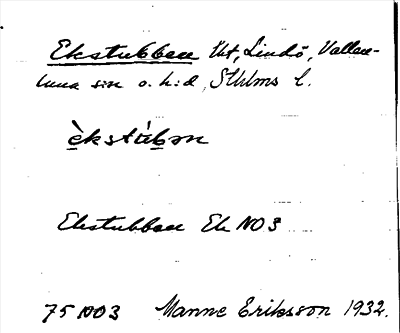 Ekstubben Ut, Lindö, Vallen-
tuna sn o. h:d, Sthlms l.
èkstúbm
Ekstubben Ek NO3
75 NO3 Manne Eriksson 1932.